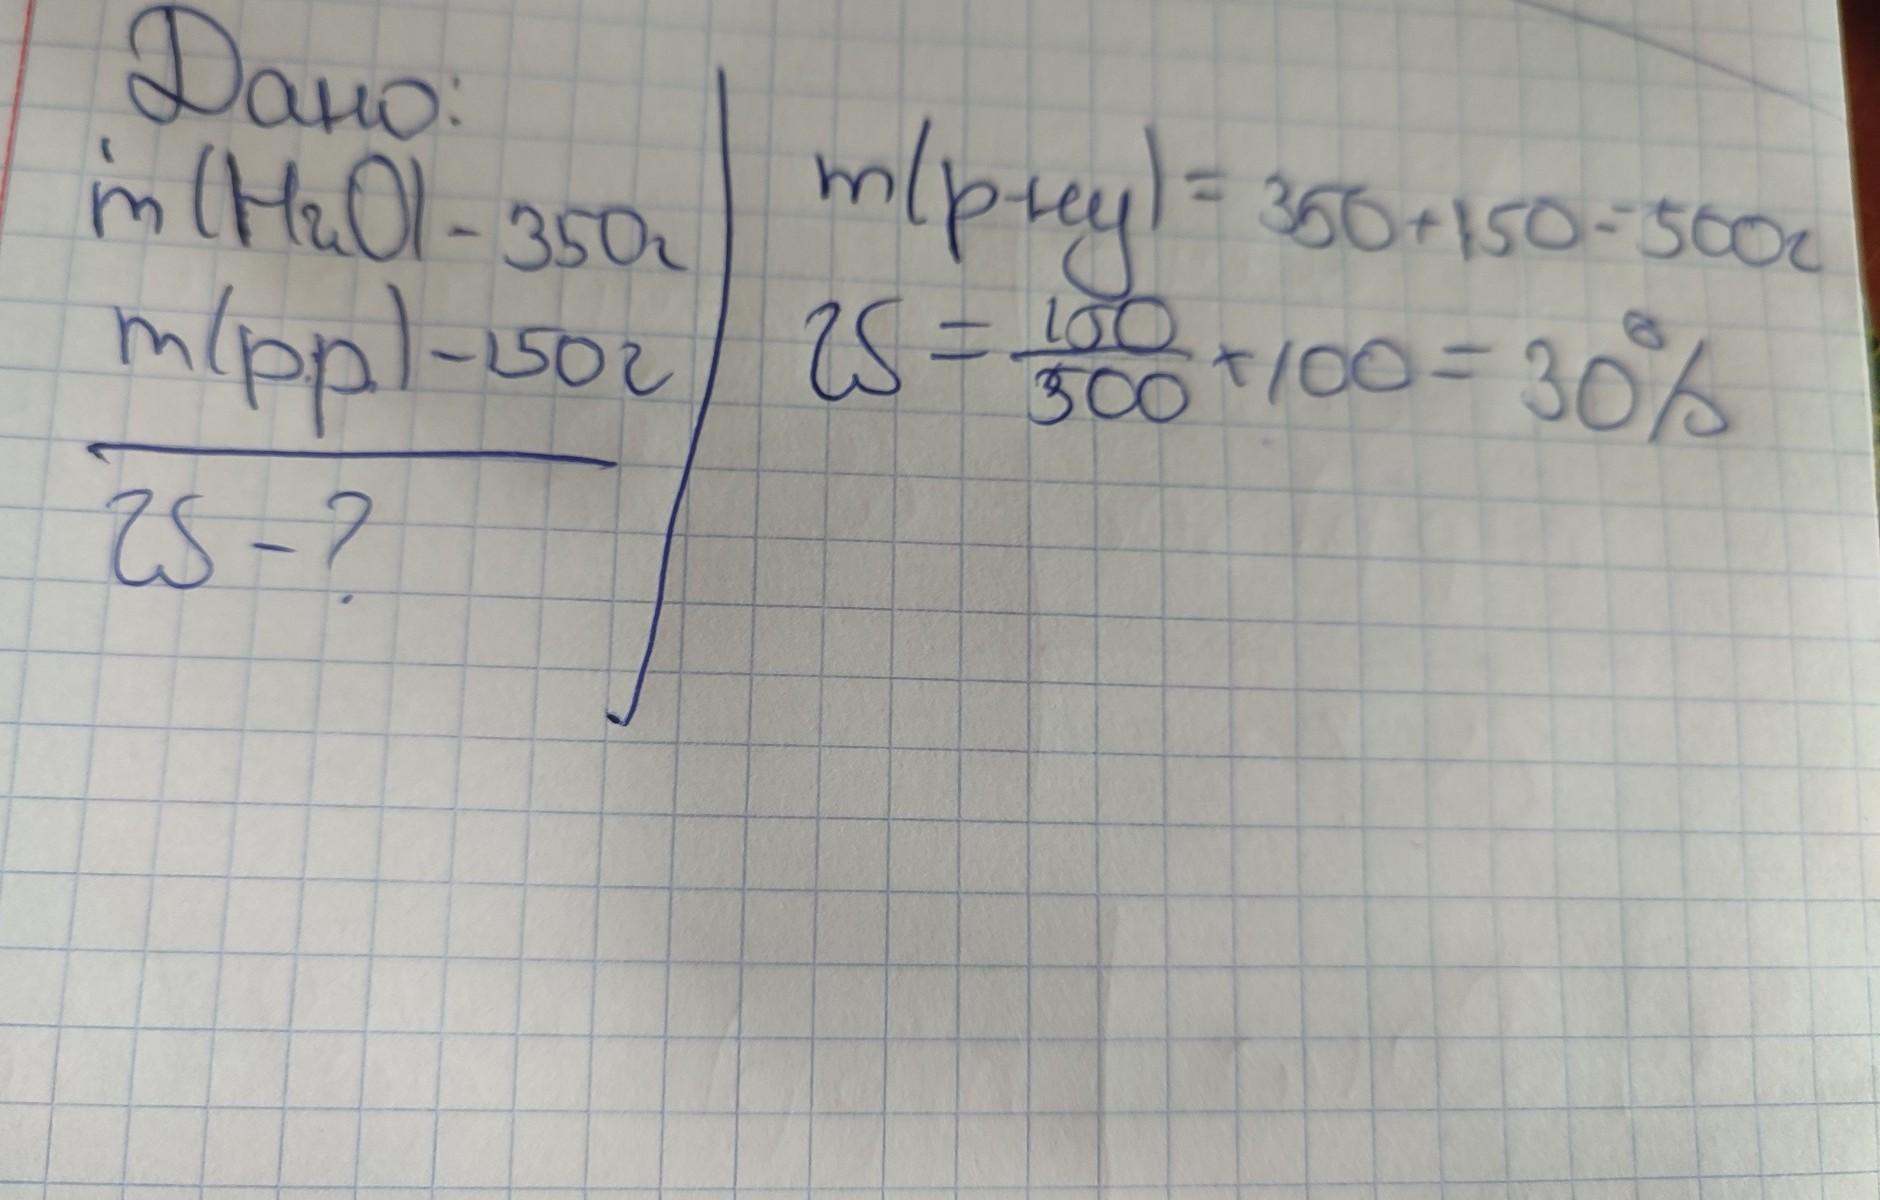 Дано:
m(H2O) - 350г
m(р.р.) - 150г
W - ?
m(р-ну) = 350+150=500г
W = 150/500 * 100 = 30%